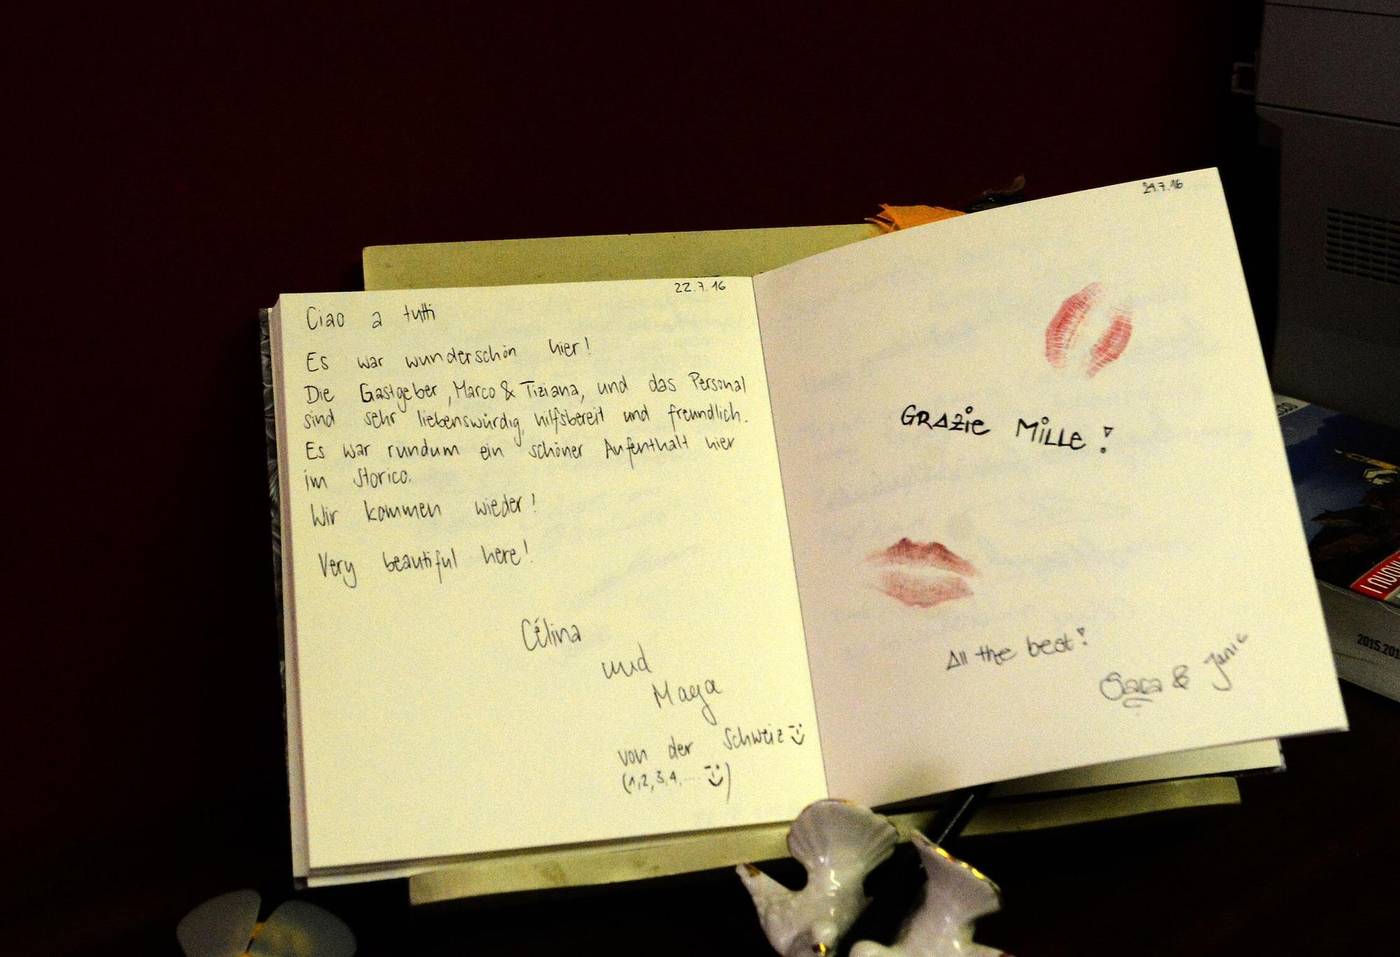 22.7.16
Ciao a tutti
Es war wunderschön hier!
Die Gastgeber, Marco & Tiziana, und das Personal
sind sehr liebenswürdig, hilfsbereit und freundlich.
Es war rundum ein schöner Aufenthalt hier
im Storico.
Wir kommen wieder!
Very beautiful here!
Célina
und
Maya
von der Schweiz
(1,2,3,4,... )
29.7.16
GRAZiE MiLLE!
All the best!
Sara & Janic
2015.201